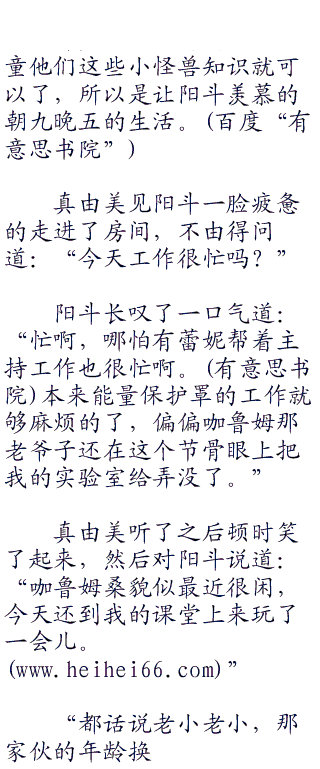 童他们这些小怪兽知识就可
以了，所以是让阳斗羡慕的
朝九晚五的生活。(百度“有
意思书院”)
真由美见阳斗一脸疲惫
的走进了房间，不由得问
道：“今天工作很忙吗？”
阳斗长叹了一口气道：
“忙啊，哪怕有蕾妮帮着主
持工作也很忙啊。(有意思书
院)本来能量保护罩的工作就
够麻烦的了，偏偏咖鲁姆那
老爷子还在这个节骨眼上把
我的实验室给弄没了。”
真由美听了之后顿时笑
了起来，然后对阳斗说道：
“咖鲁姆桑貌似最近很闲，
今天还到我的课堂上来玩了
一会儿。
(www.heihei66.com)”
“都话说老小老小，那
家伙的年龄换